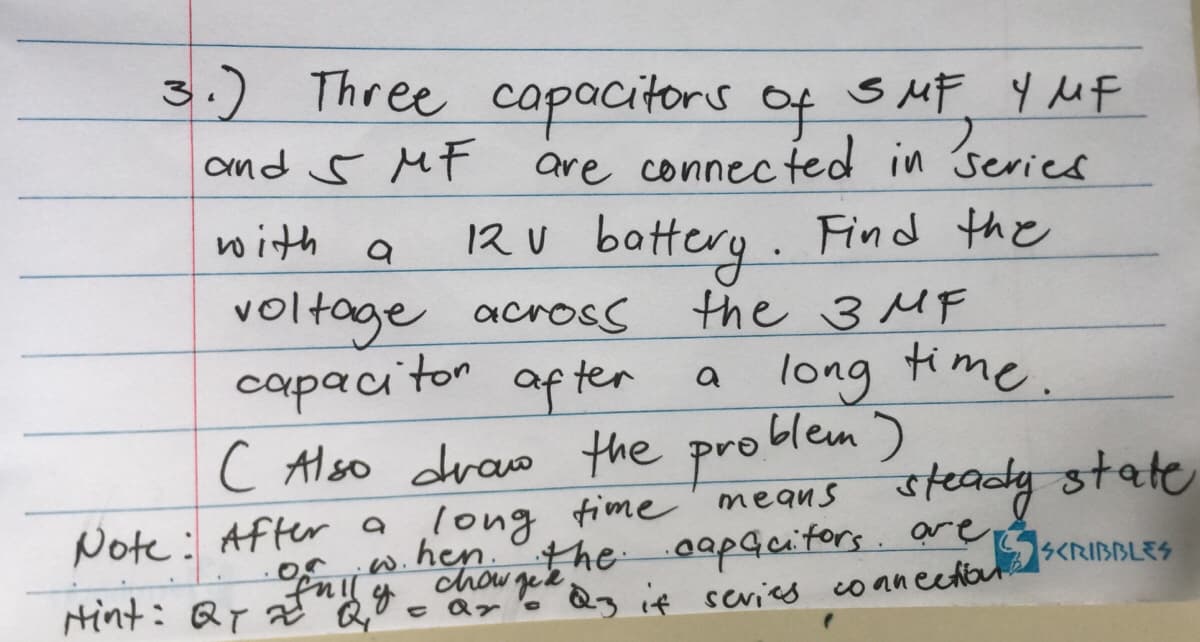 3.) Three capacitors of 3 μF, 4 μF
and 5 μF are connected in series
with a 12 V battery. Find the
voltage across the 3 μF
capacitor after a long time.
( Also draw the problem )
Note: After a long time means steady state
or when the capacitors are
fully charged.
Hint: QT ≈ Q1 = Q2 = Q3 if series connection
SCRIBBLES